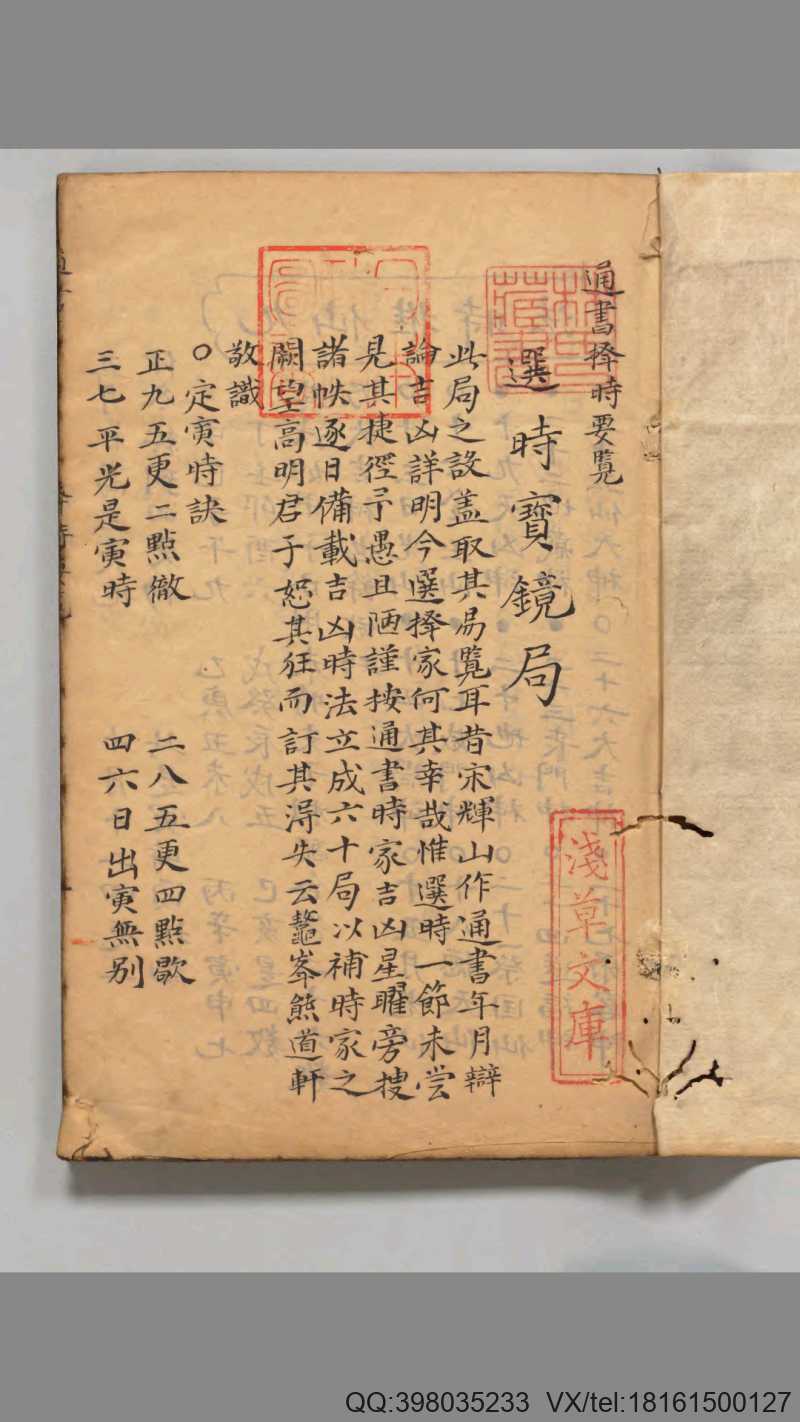 通書擇時要覽
選時寶鏡局
此局之設蓋取其易覽耳昔宋輝山作通書年月辯
論吉凶詳明今選擇家何其幸哉惟選時一節未嘗
見其捷徑予愚且陋謹按通書時家吉凶星曜旁搜
諸帙逐日備載吉凶時法立成六十局以補時家之
闕望高明君子恕其狂而訂其得失云鼇峯熊道軒
敬識
○定寅時訣
正九五更二點徹 二八五更四點歇
三七平光是寅時 四六日出寅無別
淺草文庫
QQ:398035233 VX/tel:18161500127